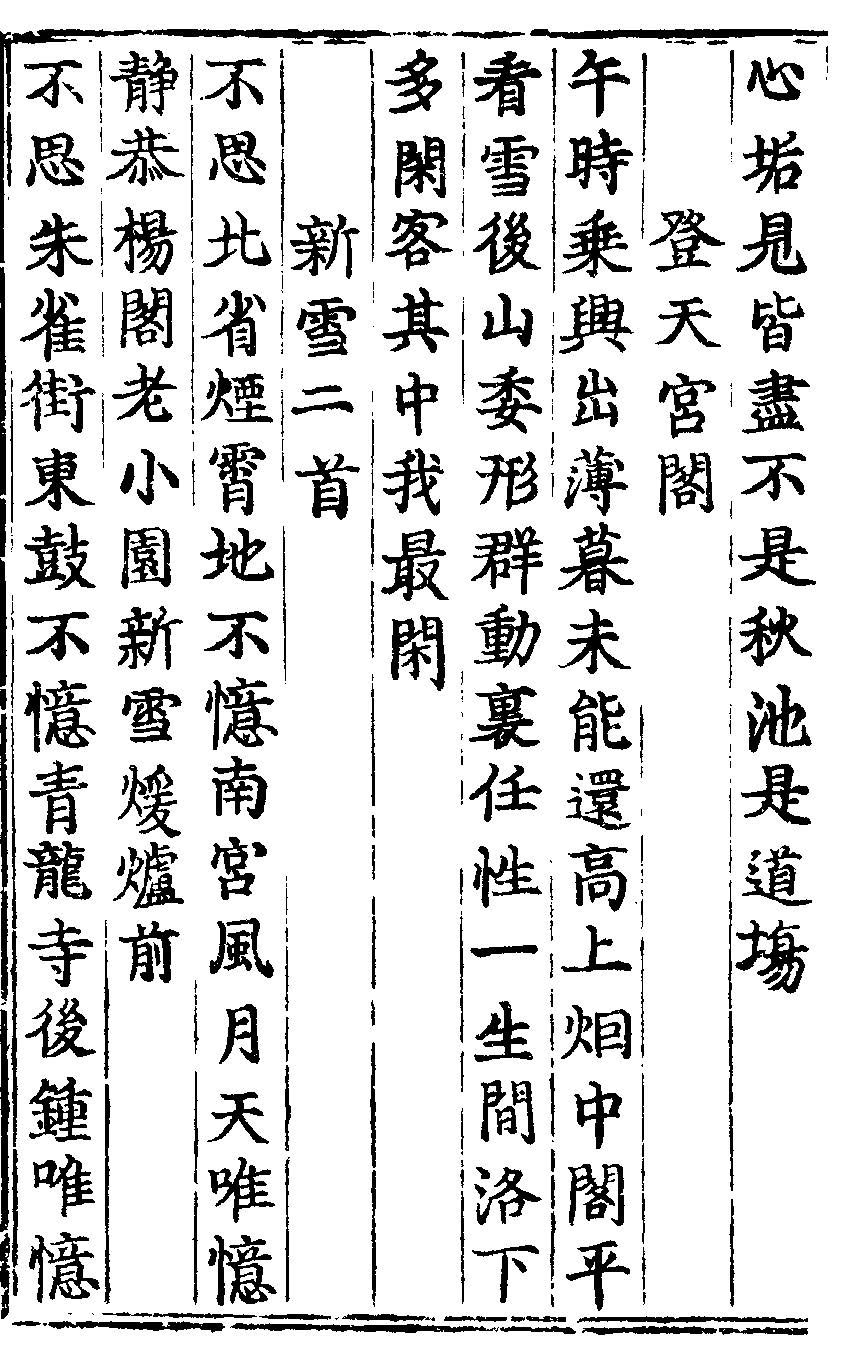 心垢見皆盡不是秋池是道場
登天宮閣
午時乗興出薄暮未能還高上烟中閣平
看雪後山委形群動裏任性一生間洛下
多閑客其中我最閑
新雪二首
不思北省煙霄地不憶南宮風月天唯憶
静恭楊閣老小園新雪煖爐前
不思朱雀街東鼓不憶青龍寺後鍾唯憶